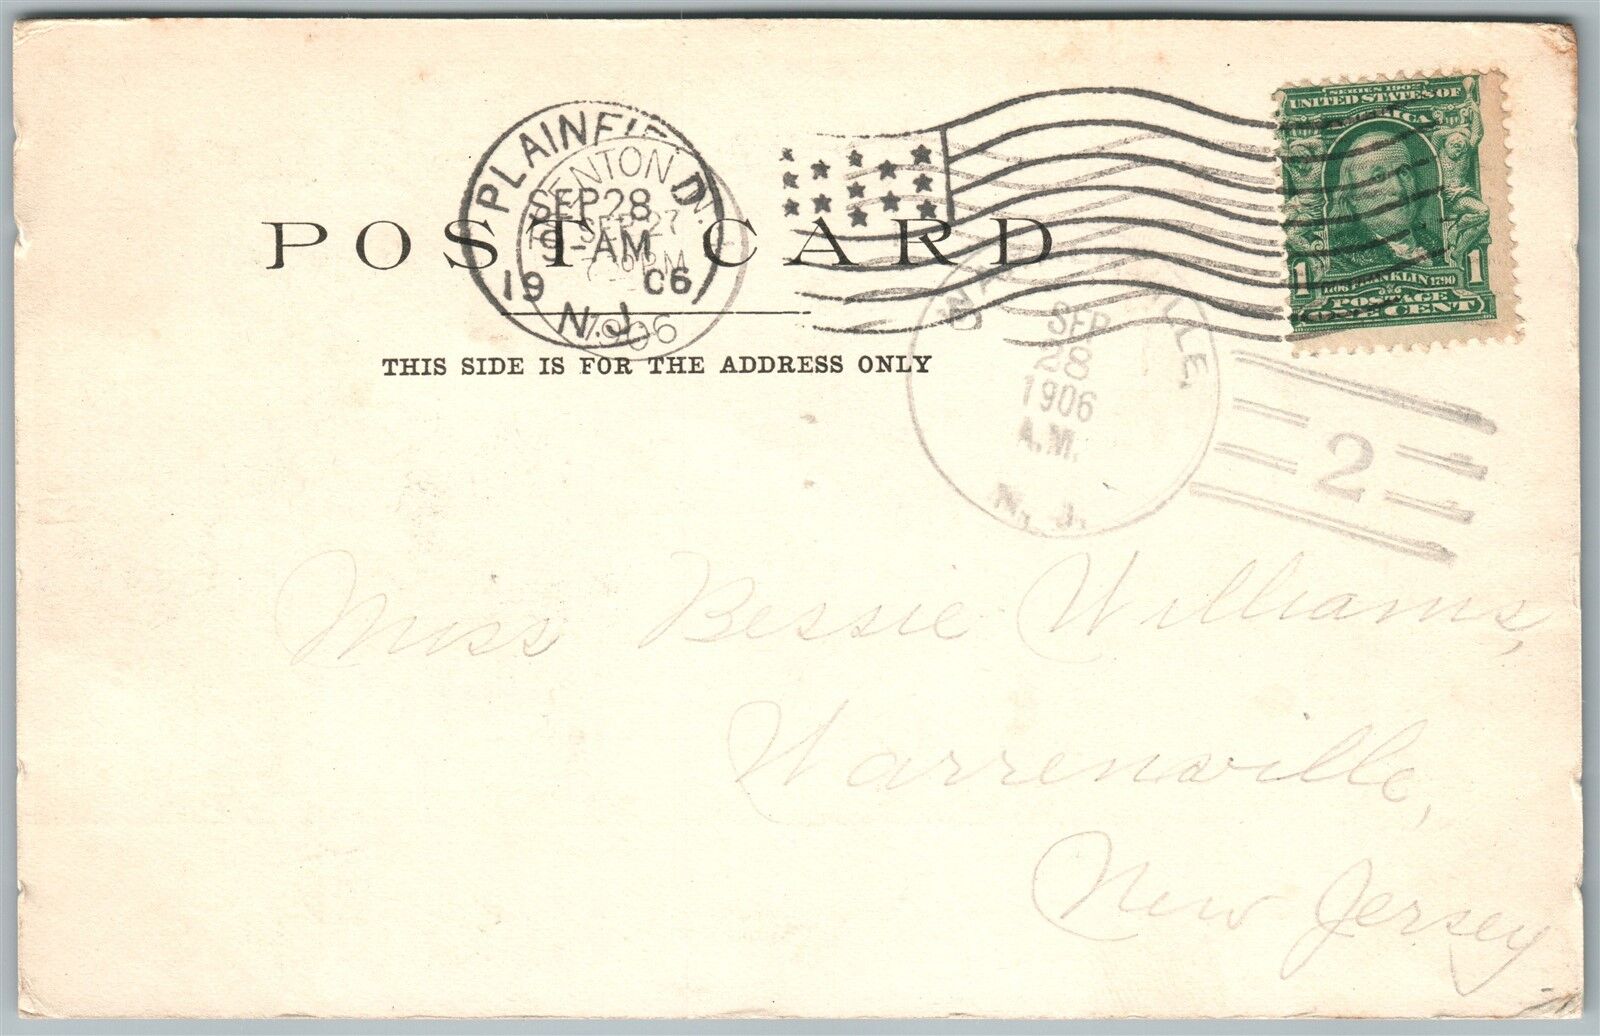 PLAINFIELD
SEP 28
9- AM
19 06
N.J.
TRENTON, N.J.
SEP 27
PM
1906
SERIES 1902
UNITED STATES OF
AMERICA
1 1
1706 FRANKLIN 1790
POSTAGE
ONE CENT
POST CARD
THIS SIDE IS FOR THE ADDRESS ONLY
SEP
28
1906
A.M.
N. J.
2
Miss Bessie Williams,
Warrenville,
New Jersey